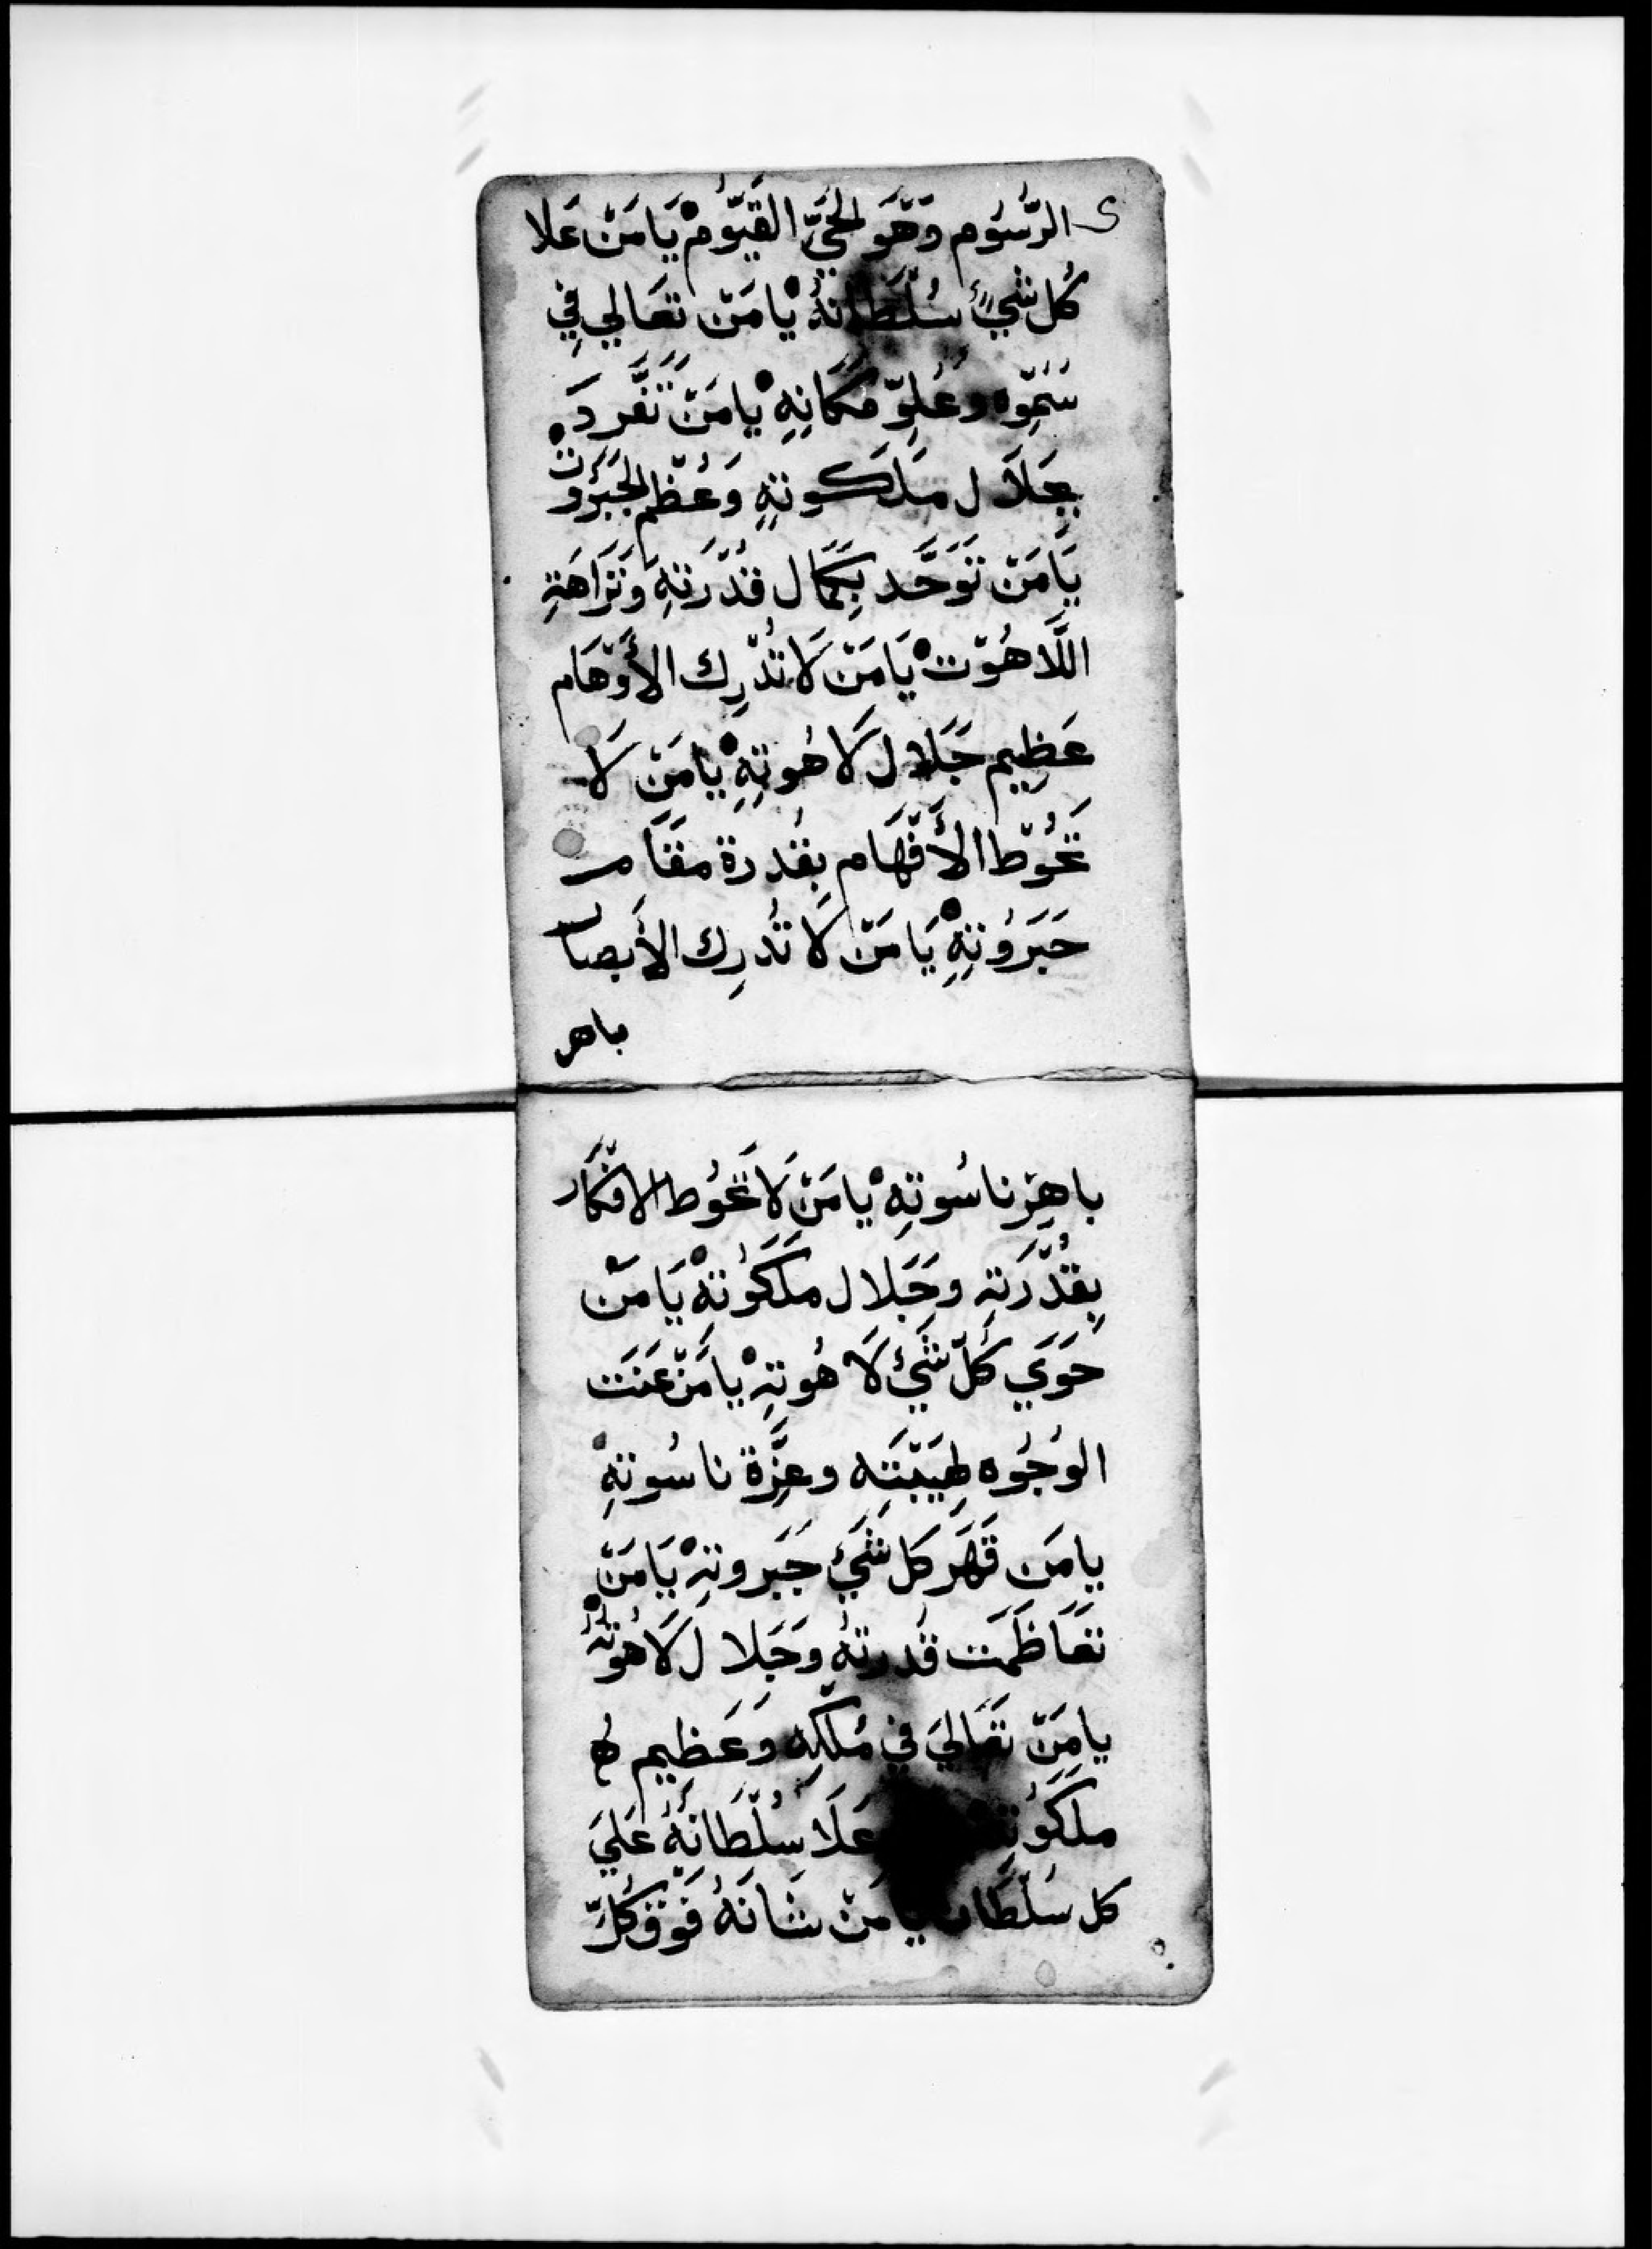 الرَّسُوْم وَهُوَ الحَيّ القَيُّوْم يَا مَنْ عَلا
كُل شَيْء سُلْطَانهُ يَا مَنْ تعَالي فِي
سُمُوّه وعُلوّ مَكَانِهِ يا مَنْ تَفَّردَ
بجَلاَل مَلَكوتهِ وَعُظْم الجَبَرُوْت
يَا مَنْ تَوَحَّد بِكَمَال قُدْرَتهِ وَنَزَاهَةِ
اللَّاهُوْت يَا مَنْ لَا تُدْرِك الأَوْهَام
عَظِيم جَلال لَاهُوتِهِ يا مَن لَا
تَحُوْط الأَفْهَام بِقُدرة مقَام
جَبَرُوْتهِ يَا مَنْ لَا تُدرِك الأَبصار
باهر
باهِرْ ناسُوتِهِ يا مَنْ لَا تَحُوْط الافْكَار
بِقُدْرَتهِ وجَلال ملَكَوُتهِ يَا مَنْ
حَوَي كُلّ شَيْء لَاهُوتهِ يا مَنْ عَنَت
الوُجُوه لِهَيْبَتِه وعِزَّة ناسُوتهِ
يا مَن قَهَر كل شَيْء جَبَروتهِ يَا مَنْ
تعَاظَمَت قُدرتهُ وجَلال لَاهُوْتهُ
يا مَنْ تعَاليَ في مُلْكِه وَعَظِيم
ملَكَوُتهِ عَلَا سُلْطَانهُ عَليَ
كل سُلْطَان يا مَنْ شَانَهُ فَوْق كُلّ